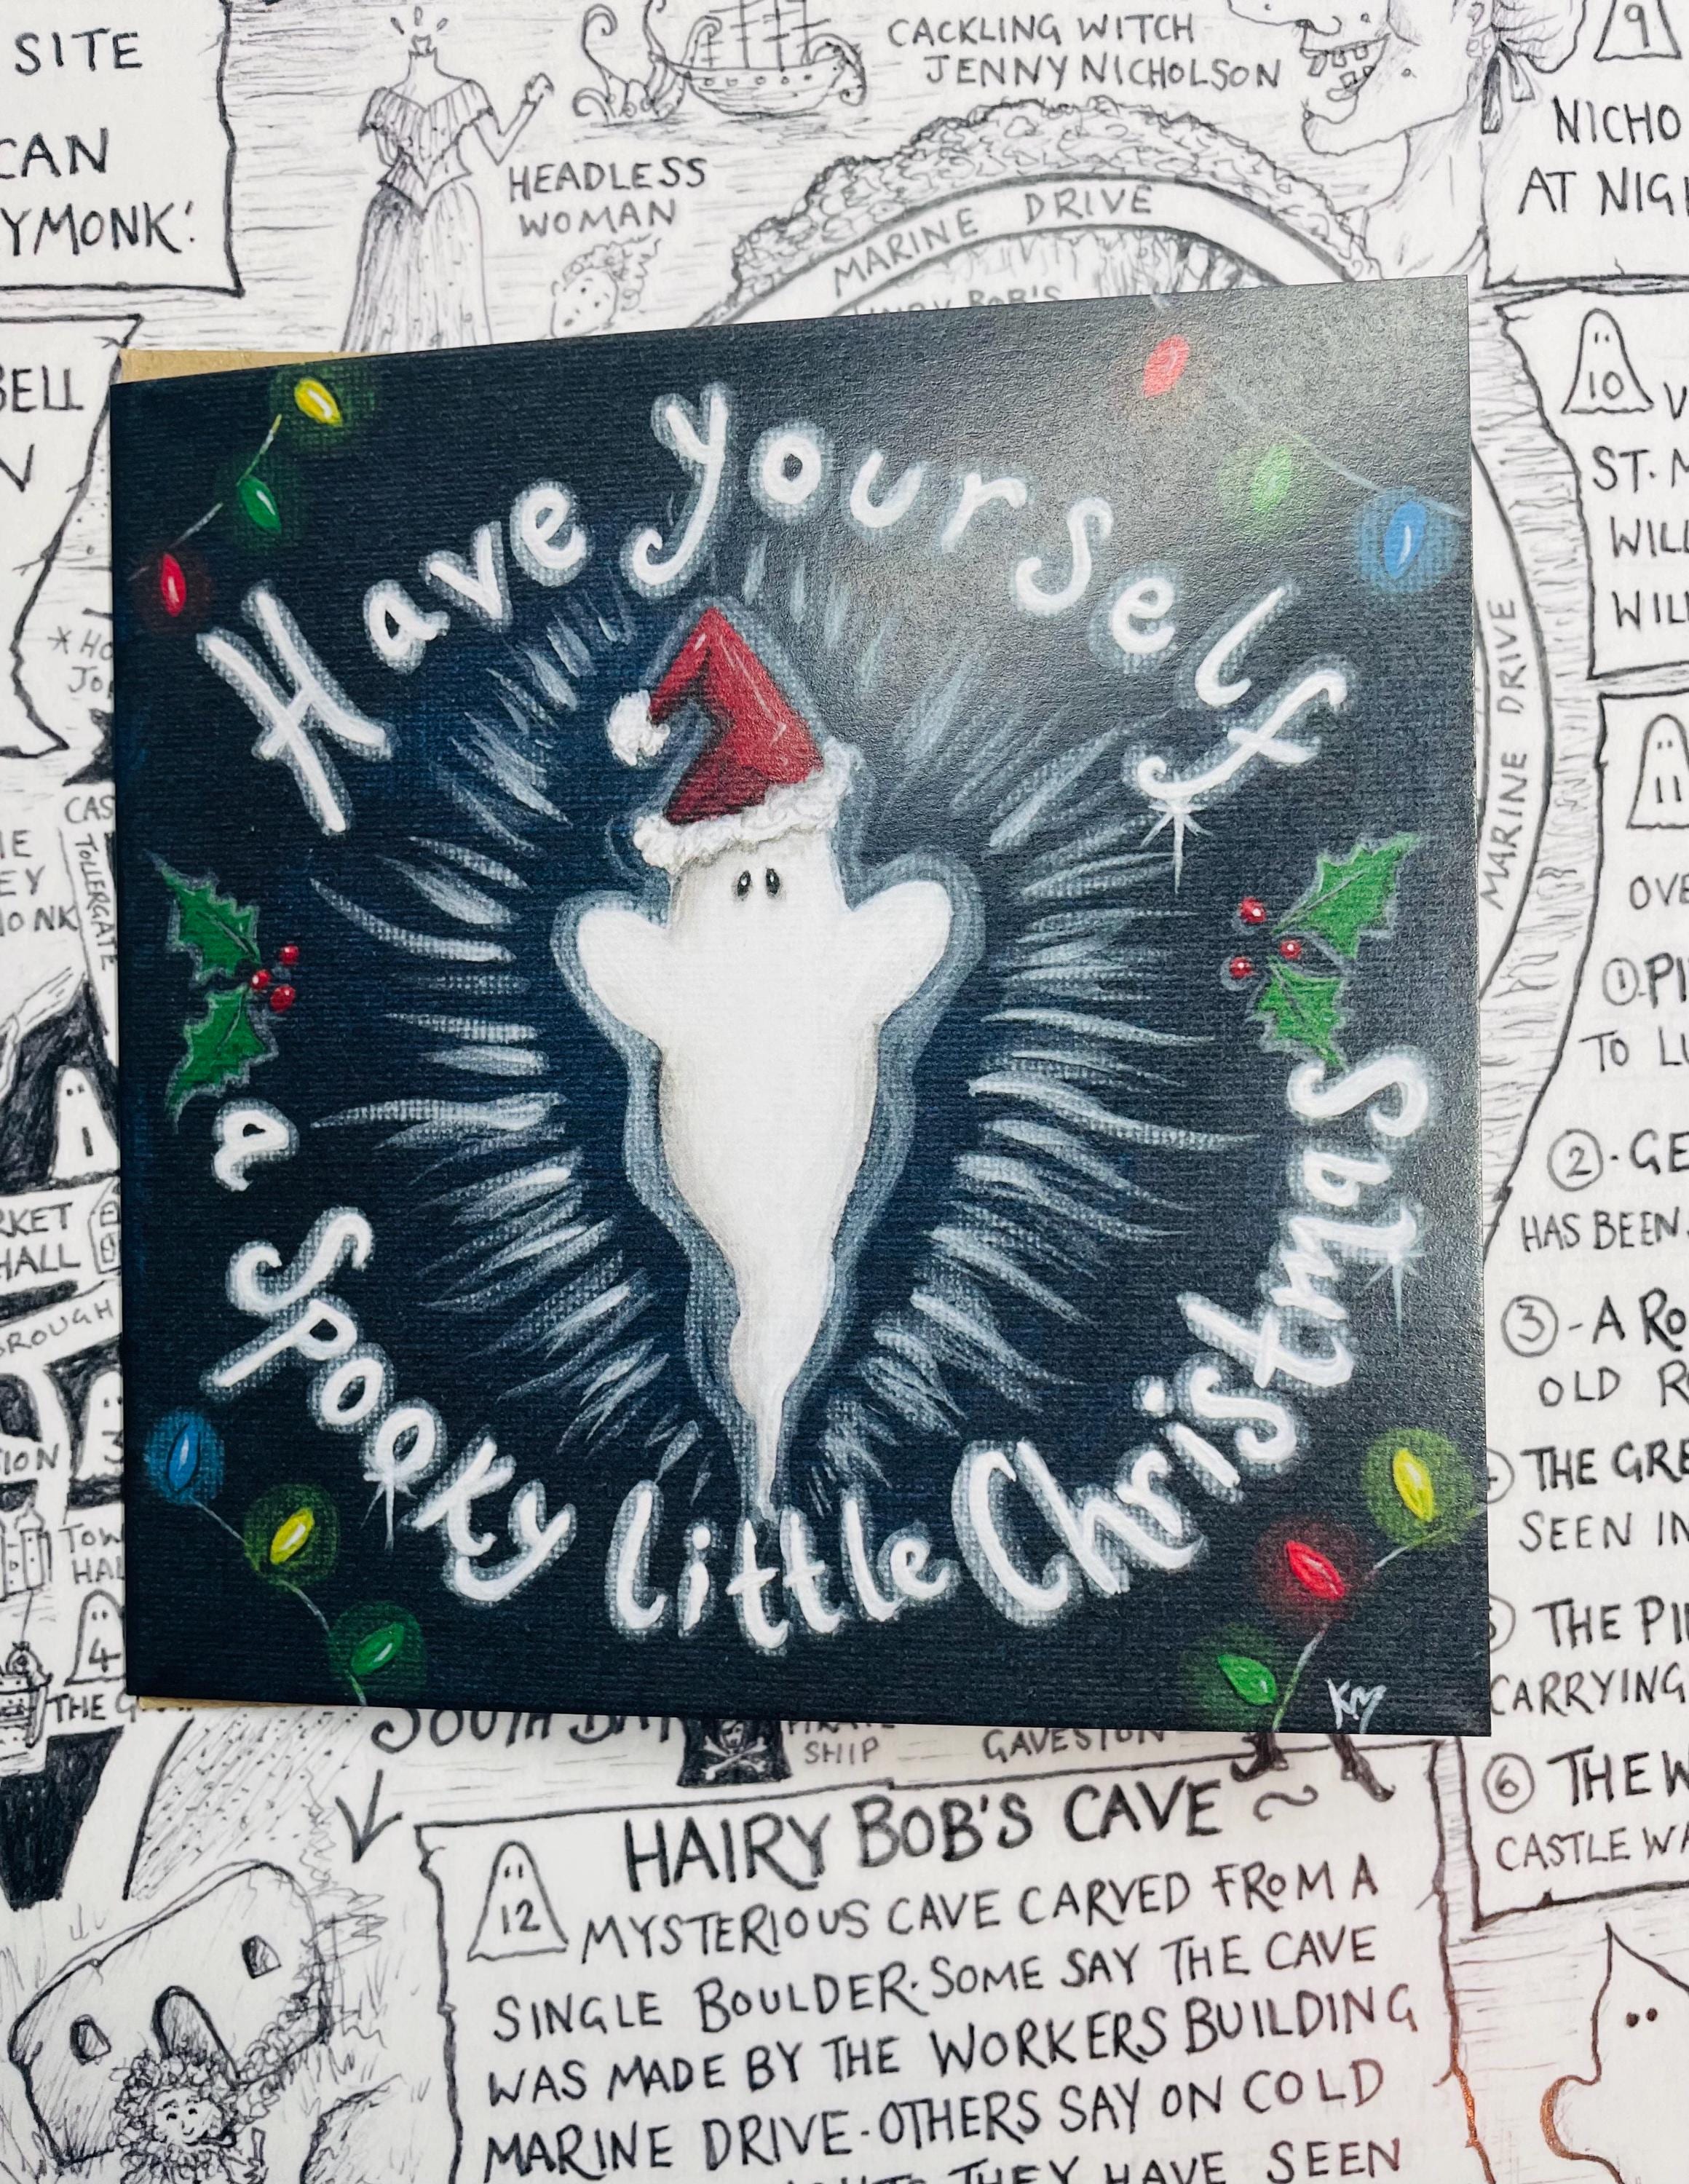 SITE
CAN
YMONK'.
HEADLESS
WOMAN
CACKLING WITCH
JENNY NICHOLSON
9
NICHO
AT NIGH
MARINE DRIVE
BOB'S
BELL
10
ST. M
WILL
WILL
11
OVE
MARINE DRIVE
* HO
JO
CAS
TOLLERGATE
ONK
1
RKET
HALL
BROUGH
3
ION
TOW
HAL
4
THE G
Have yourself
a spooky little Christmas
KM
① PI
TO LU
② - GE
HAS BEEN
③ - A RO
OLD R
THE GRE
SEEN IN
THE PI
CARRYING
⑥ THE W
CASTLE WA
SOUTH BAY
PIRATE
SHIP
GAVESTON
12
HAIRY BOB'S CAVE ~
MYSTERIOUS CAVE CARVED FROM A
SINGLE BOULDER. SOME SAY THE CAVE
WAS MADE BY THE WORKERS BUILDING
MARINE DRIVE - OTHERS SAY ON COLD
THEY HAVE SEEN